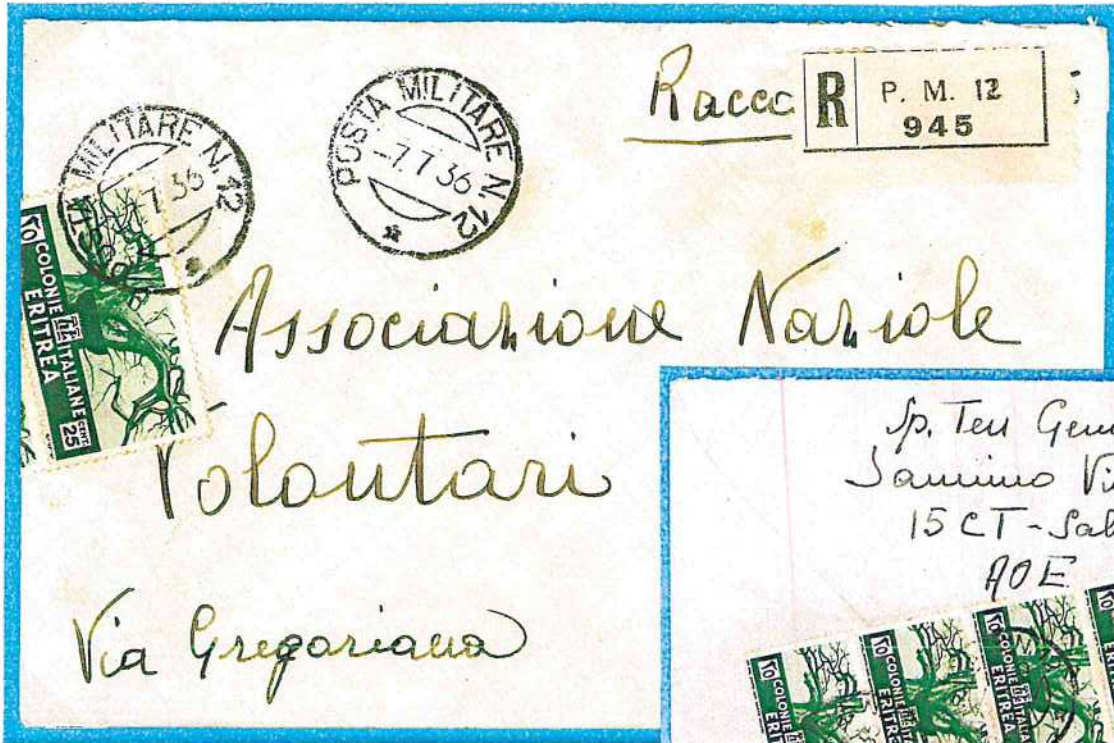 Racco
R P. M. 12
945
POSTA MILITARE N. 12
7.7.36
POSTA MILITARE N. 12
-7.7 36
10 COLONIE ITALIANE CENT. 25
ERITREA
Associazione Naziole
Volontari
Via Gregoriana
Sp. Ten Gen
Sannino Vi
15 CT - Sal
AOE
10 COLONIE
ERI
10 COLONIE IT
ERIT
10 COLONIE ITALIA
ERITREA
10